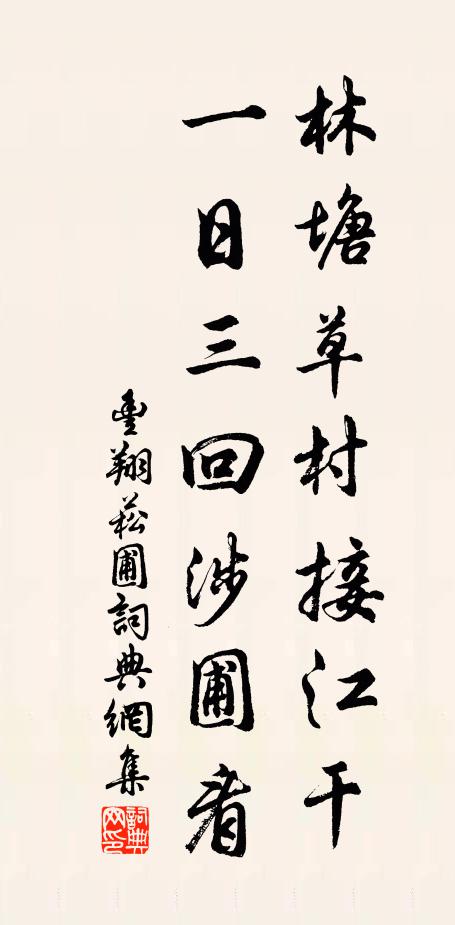 林塘草村接江干
一日三回涉圃看
豊翔菘圃詞典網集
詞典网印